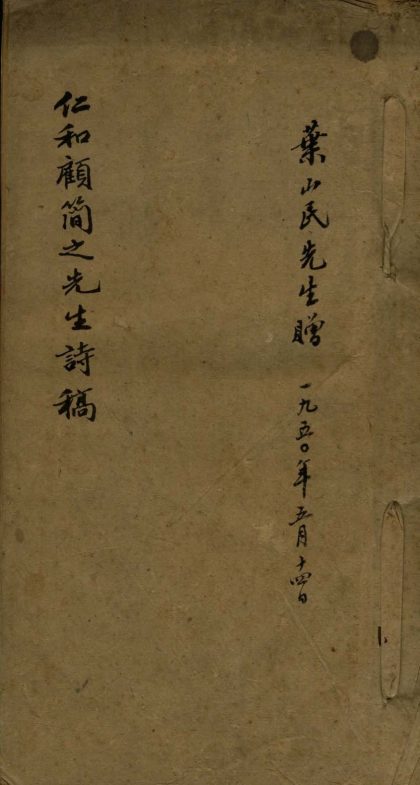 葉山民先生贈 一九五〇年五月十四日
仁和顧簡之先生詩稿